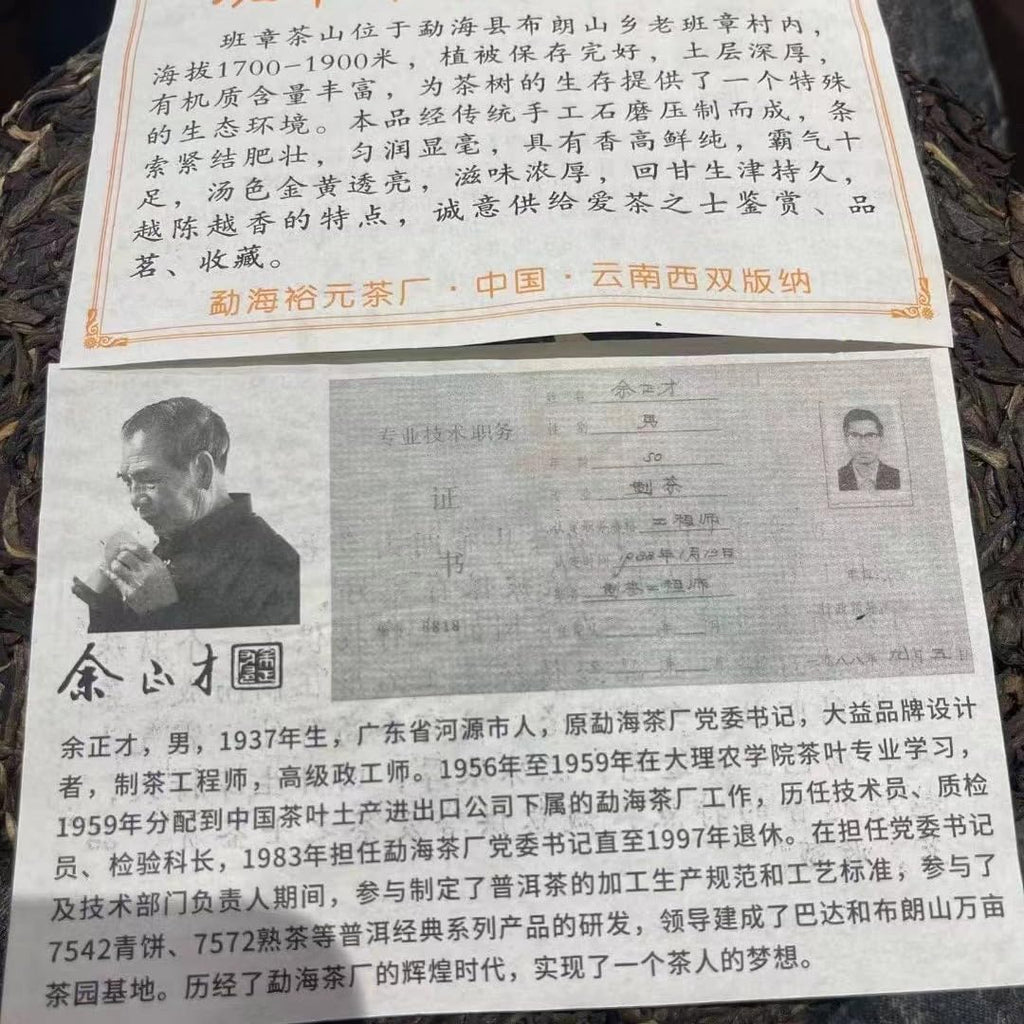 班章茶山位于勐海县布朗山乡老班章村内，
海拔1700-1900米，植被保存完好，土层深厚，
有机质含量丰富，为茶树的生存提供了一个特殊
的生态环境。本品经传统手工石磨压制而成，条
索紧结肥壮，匀润显毫，具有香高鲜纯，霸气十
足，汤色金黄透亮，滋味浓厚，回甘生津持久，
越陈越香的特点，诚意供给爱茶之士鉴赏、品
茗、收藏。
勐海裕元茶厂·中国·云南西双版纳
专业技术职务
证
书
8818
姓名 余正才
性别 男
年龄 50
制茶
工程师
1988年1月19日
制茶工程师
余正才
余正才，男，1937年生，广东省河源市人，原勐海茶厂党委书记，大益品牌设计
者，制茶工程师，高级政工师。1956年至1959年在大理农学院茶叶专业学习，
1959年分配到中国茶叶土产进出口公司下属的勐海茶厂工作，历任技术员、质检
员、检验科长，1983年担任勐海茶厂党委书记直至1997年退休。在担任党委书记
及技术部门负责人期间，参与制定了普洱茶的加工生产规范和工艺标准，参与了
7542青饼、7572熟茶等普洱经典系列产品的研发，领导建成了巴达和布朗山万亩
茶园基地。历经了勐海茶厂的辉煌时代，实现了一个茶人的梦想。